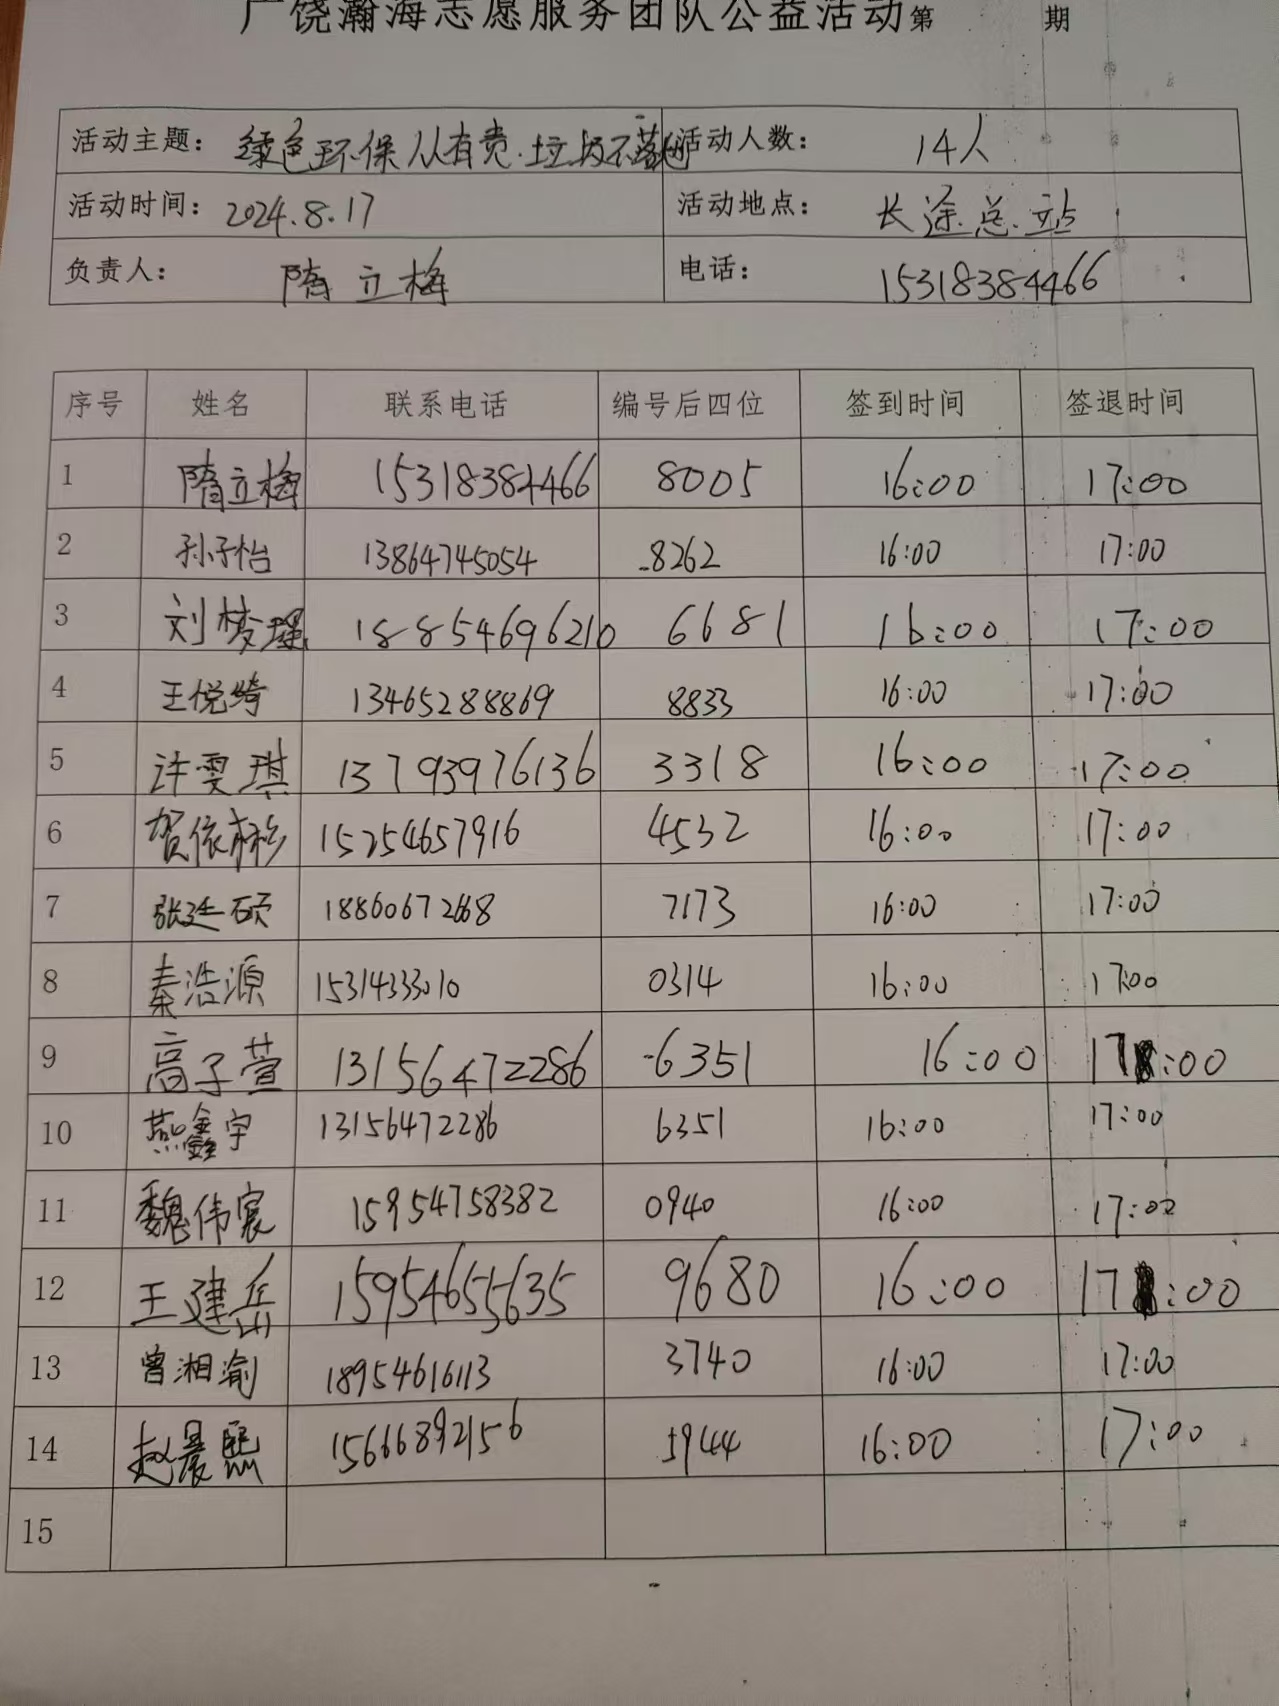 广饶瀚海志愿服务团队公益活动第 期
活动主题： 绿色环保人有责.垃圾不落地 活动人数： 14人
活动时间： 2024.8.17 活动地点： 长途总站
负责人： 隋立梅 电话： 15318384466
序号 姓名 联系电话 编号后四位 签到时间 签退时间
1 隋立梅 15318384466 8005 16:00 17:00
2 孙子怡 13864745054 8262 16:00 17:00
3 刘梦瑶 18854696210 6681 16:00 17:00
4 王悦绮 13465288869 8833 16:00 17:00
5 许雯琪 13793976136 3318 16:00 17:00
6 贺依彬 15254657916 4532 16:00 17:00
7 张廷硕 18860672668 7173 16:00 17:00
8 秦浩源 15314333010 0314 16:00 17:00
9 高子萱 13156472286 6351 16:00 17:00
10 燕鑫宇 13156472286 6351 16:00 17:00
11 魏伟宸 15954758382 0940 16:00 17:00
12 王建岳 15954655635 9680 16:00 17:00
13 曾湘渝 18954616113 3740 16:00 17:00
14 赵晨熙 15666892156 5944 16:00 17:00
15